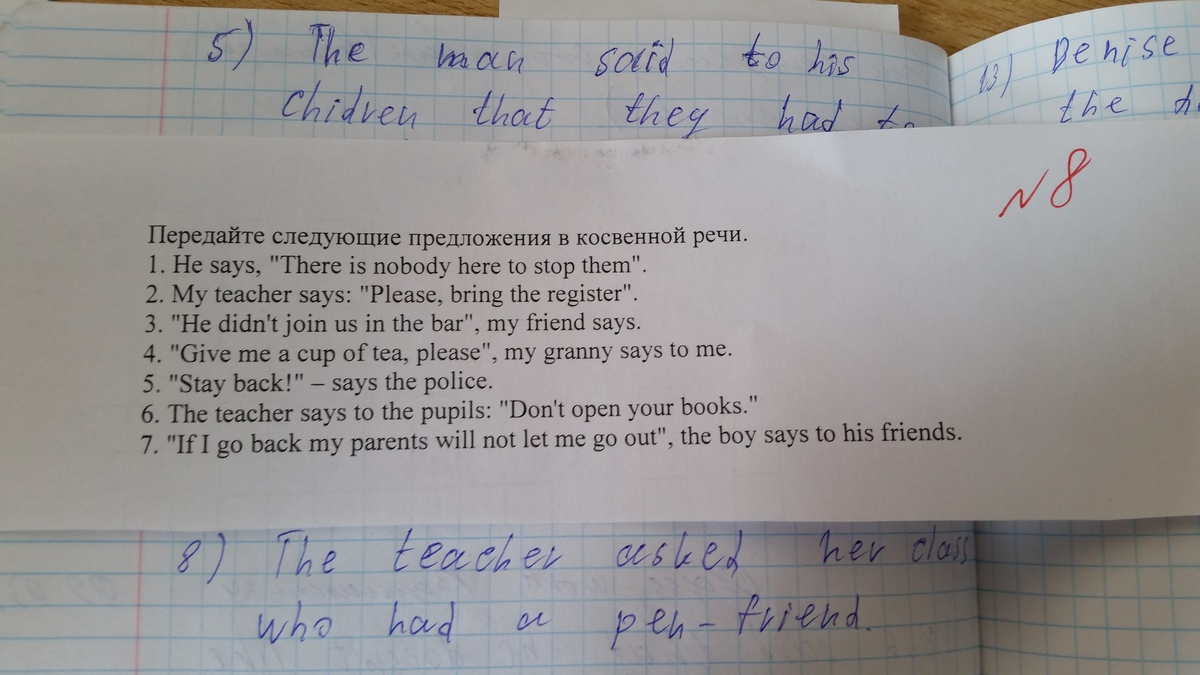 5) The man said to his
Chidren that they had to
13) Denise
the
N 8
Передайте следующие предложения в косвенной речи.
1. He says, "There is nobody here to stop them".
2. My teacher says: "Please, bring the register".
3. "He didn't join us in the bar", my friend says.
4. "Give me a cup of tea, please", my granny says to me.
5. "Stay back!" – says the police.
6. The teacher says to the pupils: "Don't open your books."
7. "If I go back my parents will not let me go out", the boy says to his friends.
8) The teacher asked her class
who had a pen-friend.